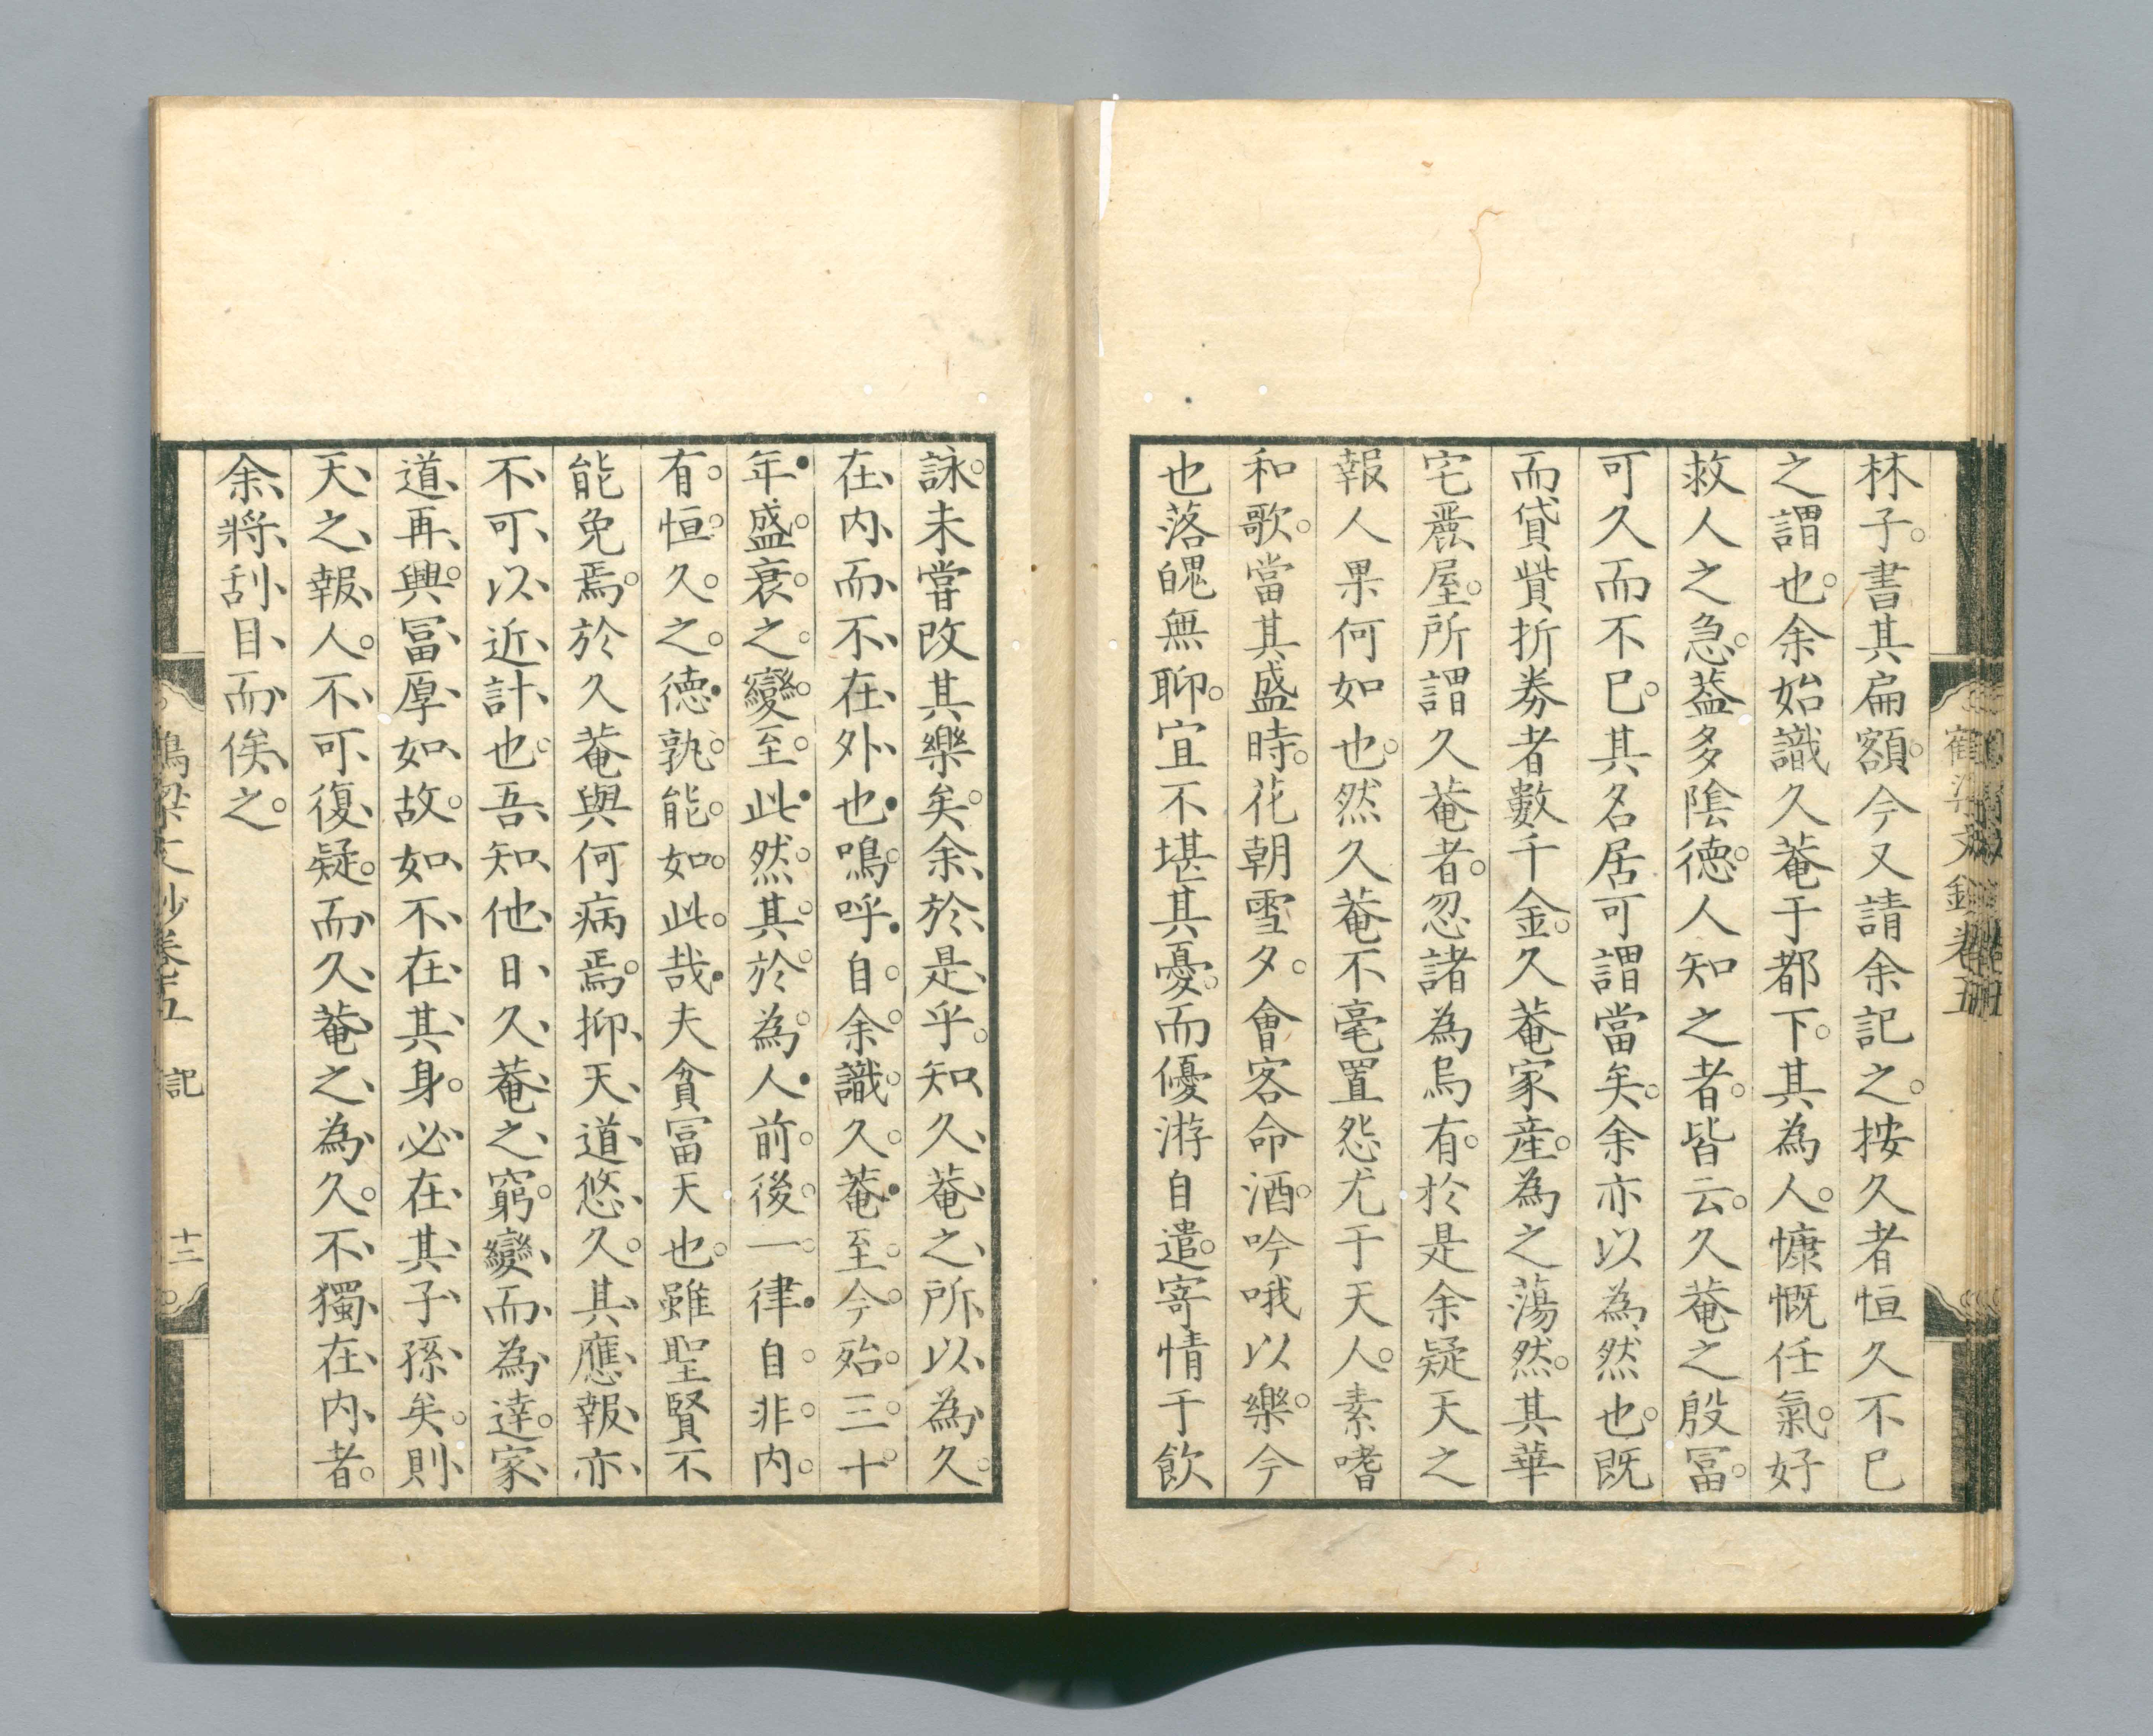 林子。書其扁額。今又請余記之。按久者恒久不已
之謂也。余始識久菴于都下。其為人。慷慨任氣。好
救人之急。葢多陰德。人知之者。皆云。久菴之殷冨。
可久而不已。其名居可謂當矣。余亦以為然也。既
而貸貲折券者數千金。久菴家産。為之蕩然。其華
宅麗屋。所謂久菴者。忽諸為烏有。於是余疑天之
報人果何如也。然久菴不毫置怨尤于天人。素嗜
和歌。當其盛時。花朝雪夕。會客命酒。吟哦以樂。今
也落魄無聊。宜不堪其憂。而優游自遣。寄情于飲
詠。未嘗改其樂矣。余於是乎。知久菴之所以為久。
在内而不在外也。嗚呼。自余識久菴。至今殆三十
年。盛衰之變至此。然其於為人。前後一律。自非内
有恒久之德。孰能如此哉。夫貧冨天也。雖聖賢不
能免焉。於久菴與何病焉。抑天道悠久。其應報亦
不可以近計也。吾知他日久菴之窮。變而為達。家
道再興。冨厚如故。如不在其身。必在其子孫矣。則
天之報人。不可復疑。而久菴之為久。不獨在内者。
余將刮目而俟之。
文 卷五 記 十二